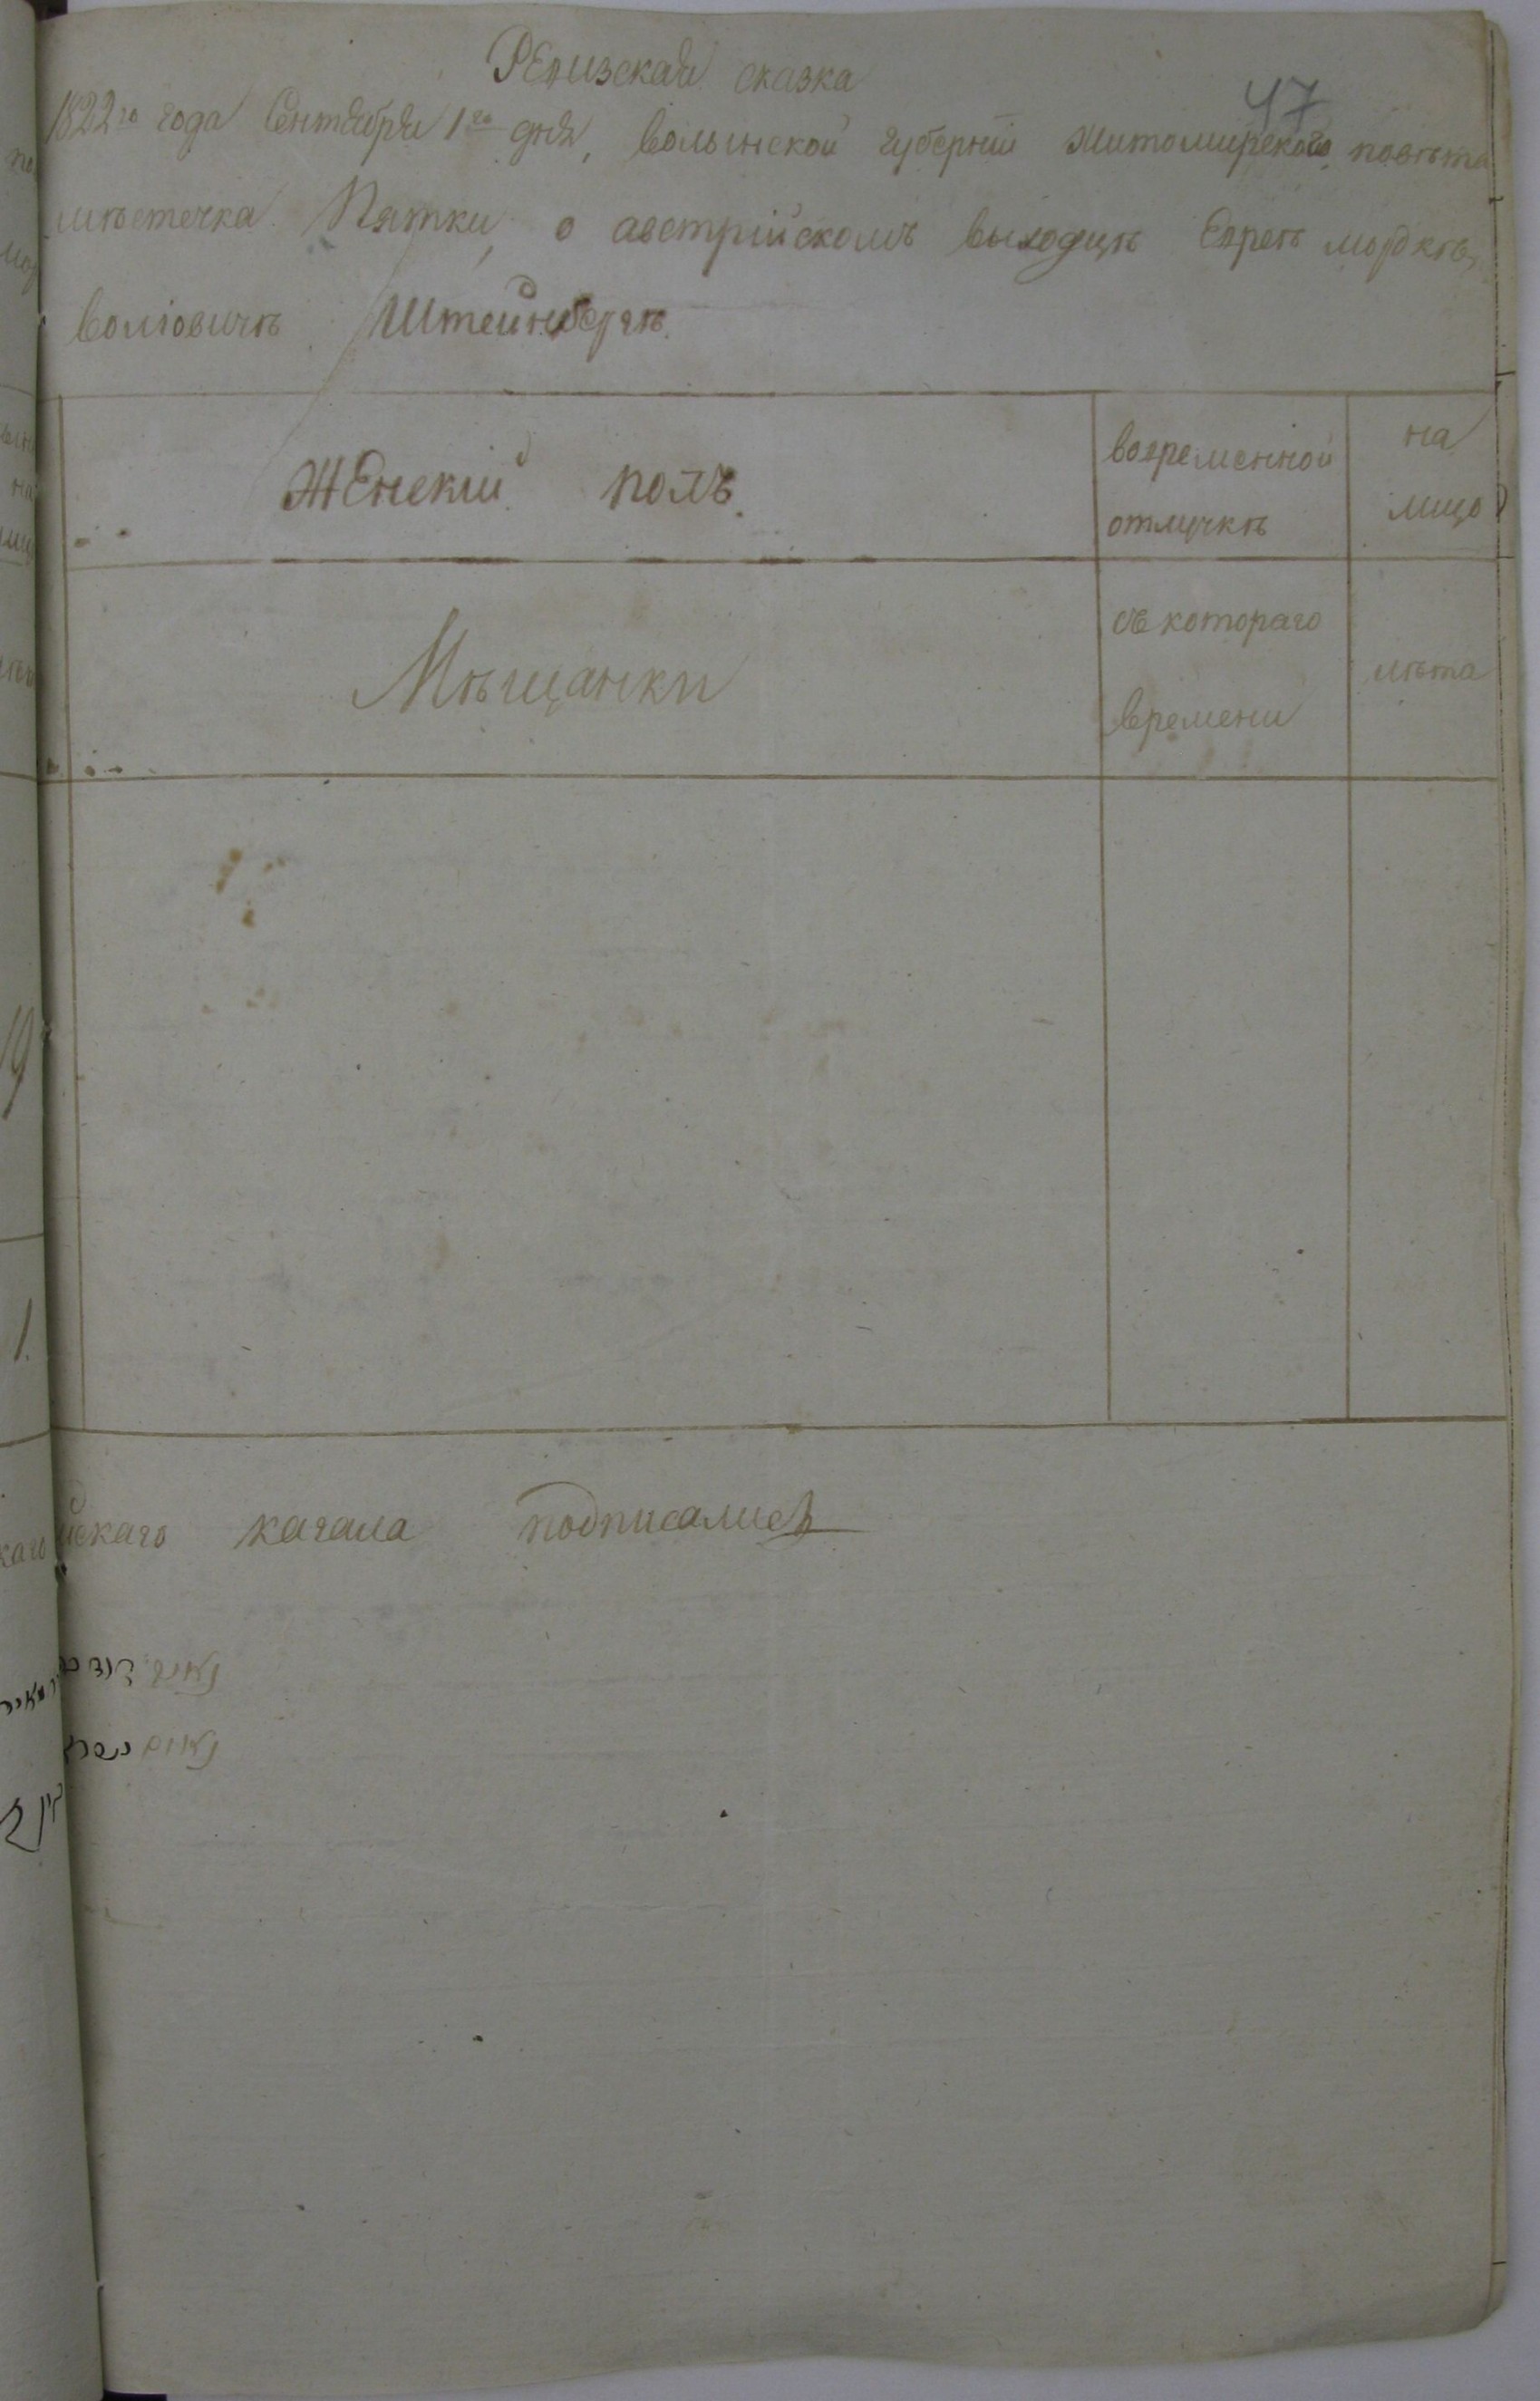 Ревизская сказка
47
1822го года Сентября 1го дня, волынской губернии Житомирского повѣта
мѣстечка Пятки, о австрийскомъ выходцѣ Евреѣ мордкѣ
волiовичѣ Штейнбергѣ.
Женский полъ.
вовременной
отлучкѣ
на
лицо
Мѣщанки
съ котораго
времени
лѣта
йскаго кагала подписались
נאום דוד
נאום